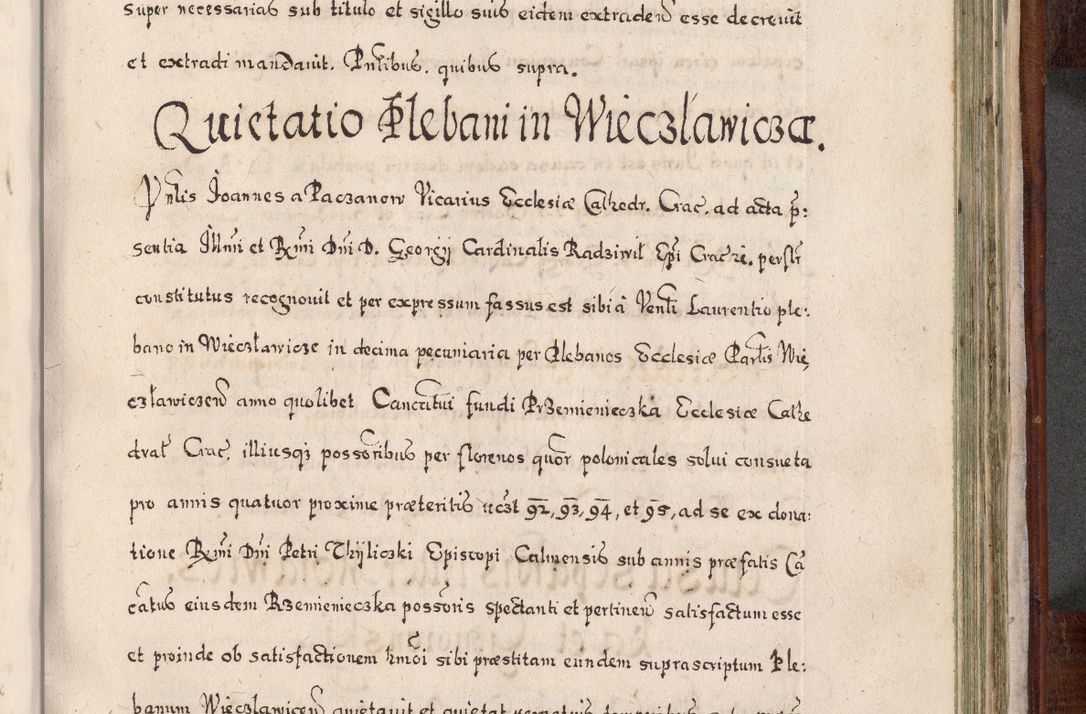 super necessarias sub titulo et sigillo suis eidem extraden̄ esse decrevit
et extradi mandavit. Pn̄tibus. quibus supra.
Quietatio Plebani in Wieczlawicza.
Vn̄lis Joannes a Paczanow Vicarius Ecclesiæ Cathedr. Crac. ad acta p̄:
sentia Illmi et Rmi Dni D. Georgij Cardinalis Radziwil Epi Crac. perslr
constitutus recognovit et per expressum fassus est sibi à Venli Laurentio ple:
bano in Wieczlawicze in decima pecuniaria per Plebanos Ecclesiæ Parlis Wie,
czławiczen̄ anno quolibet Canctui fundi Przemienieczka Ecclesiæ Cathe
dral Crac. illiusqz possoribus per florenos quor polonicales solui consueta
pro annis quatuor proxime præteritis uczt 92, 93, 94, et 95, ad se ex dona:
tione Rmi Dni Petri Thyliczki Episcopi Calmensis sub annis præfatis Ca
catus eiusdem Rzemienieczka possoris spectanti et pertinen̄ satisfactum esse
et proinde ob satisfactionem hmoi sibi præstitam eundem suprascriptum Ple:
banum Wieczlawicen̄ quietavit et quietat